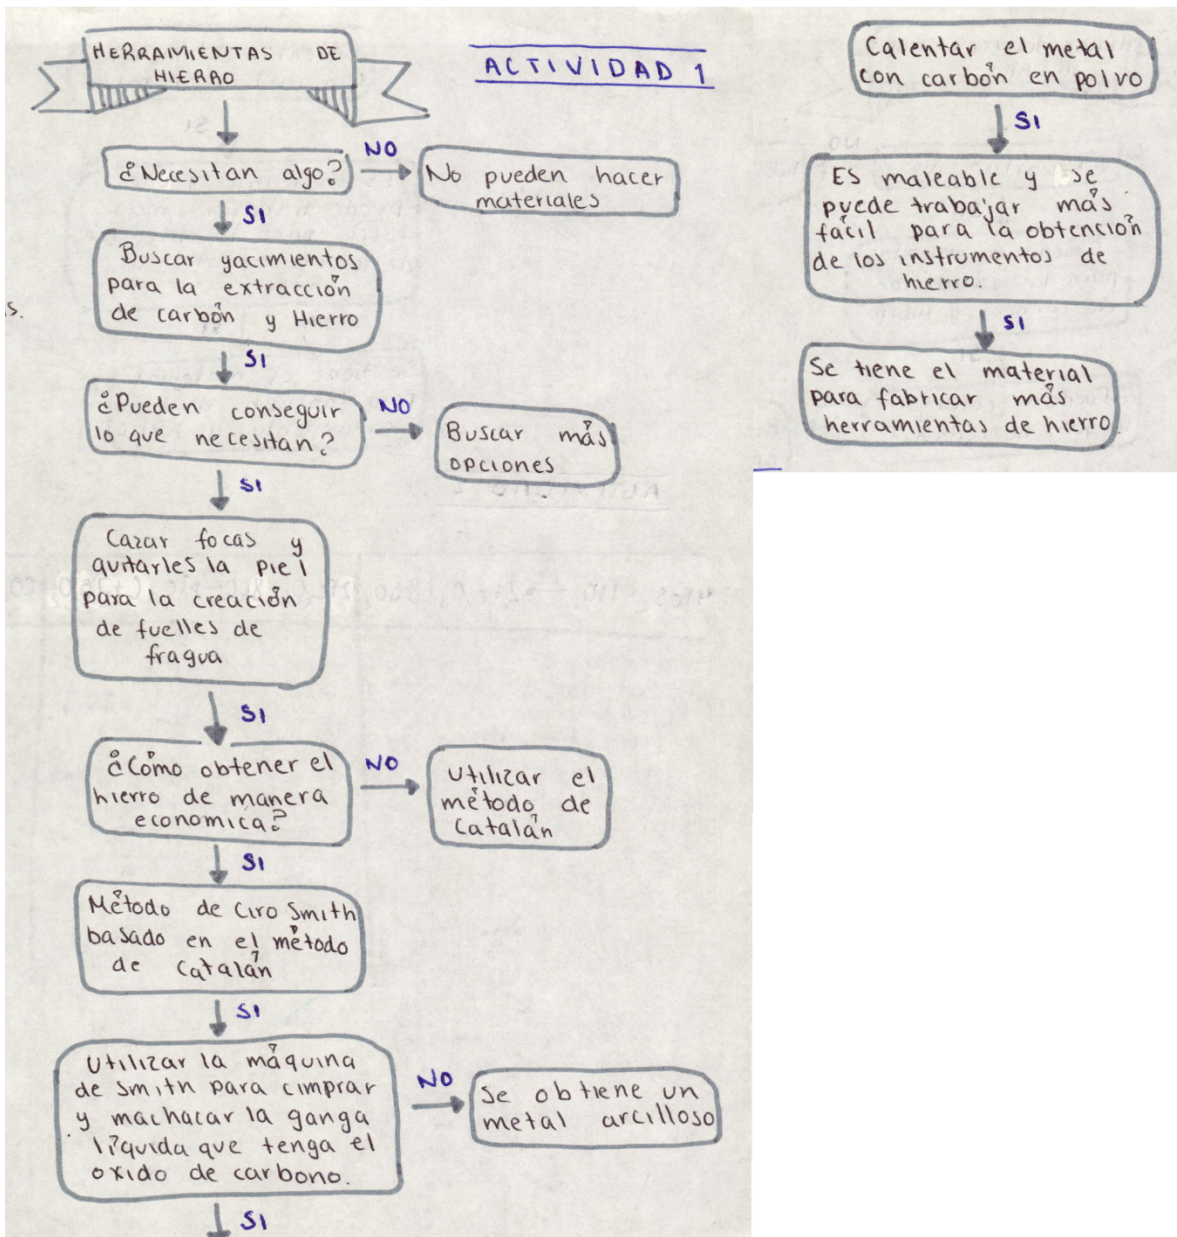 HERRAMIENTAS DE
HIERRO
ACTIVIDAD 1
¿Necesitan algo?
NO
No pueden hacer
materiales
SI
Buscar yacimientos
para la extracción
de carbón y Hierro
s.
SI
¿Pueden conseguir
lo que necesitan?
NO
Buscar más
opciones
SI
Cazar focas y
quitarles la piel
para la creación
de fuelles de
fragua
SI
¿Cómo obtener el
hierro de manera
economíca?
NO
Utilizar el
método de
Catalán
SI
Método de Ciro Smith
basado en el método
de Catalán
SI
Utilizar la máquina
de Smith para cimprar
y machacar la ganga
líquida que tenga el
oxido de carbono.
NO
Se obtiene un
metal arcilloso
SI
Calentar el metal
con carbón en polvo
SI
ES maleable y se
puede trabajar más
fácil para la obtención
de los instrumentos de
hierro.
SI
Se tiene el material
para fabricar más
herramientas de hierro